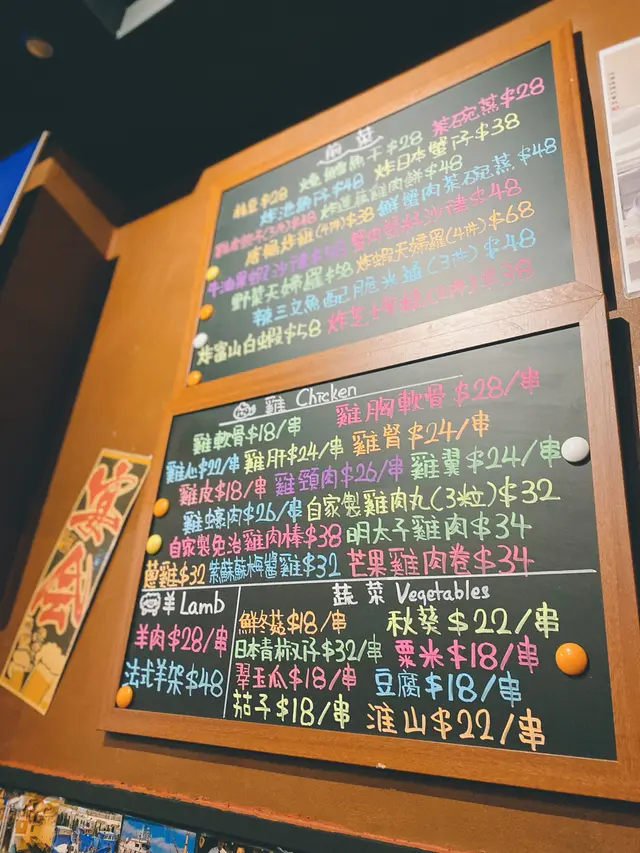 前菜
枝豆$28 燒鱈魚干$28 茶碗蒸$28
炸池魚仔$48 炸日本蟹仔$38
炸蓮藕雞肉餅$48
唐揚炸雞(4件)$38 鮮蟹肉茶碗蒸$48
牛油果蝦沙律 沙律$48
野菜天婦羅$58 炸蝦天婦羅(4件)$68
三文魚配脆米鋪(3件)$48
炸富山白蝦$58 $38
雞 Chicken
雞軟骨$18/串 雞胸軟骨$28/串
雞心$22/串 雞肝$24/串 雞腎$24/串
雞皮$18/串 雞頸肉$26/串 雞翼$24/串
雞蠔肉$26/串 自家製雞肉丸(3粒)$32
自家製免治雞肉棒$38 明太子雞肉$34
蔥雞$32 紫蘇蘇梅醬雞$32 芒果雞肉卷$34
羊 Lamb
羊肉$28/串
法式羊架$48
蔬菜 Vegetables
鮮冬菇$18/串 秋葵$22/串
日本青椒仔$32/串 粟米$18/串
翠玉瓜$18/串 豆腐$18/串
茄子$18/串 淮山$22/串